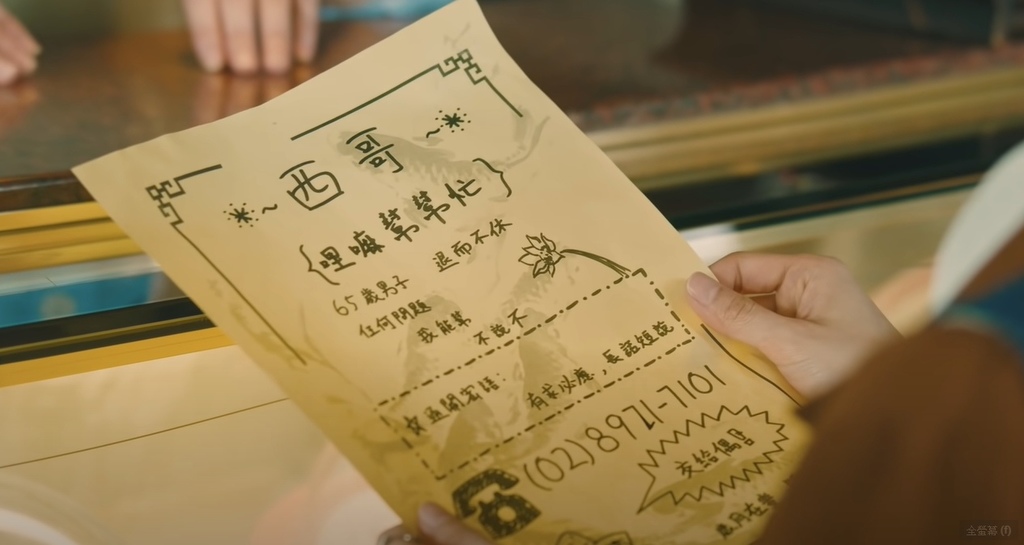 ~西哥~
{哩嘛幫幫忙}
65歲男子 退而不休
任何問題
我能幫 不說不
交通關客語:
有求必應,長話短說
(02)8971-7101
交給偶!
全螢幕 (f)